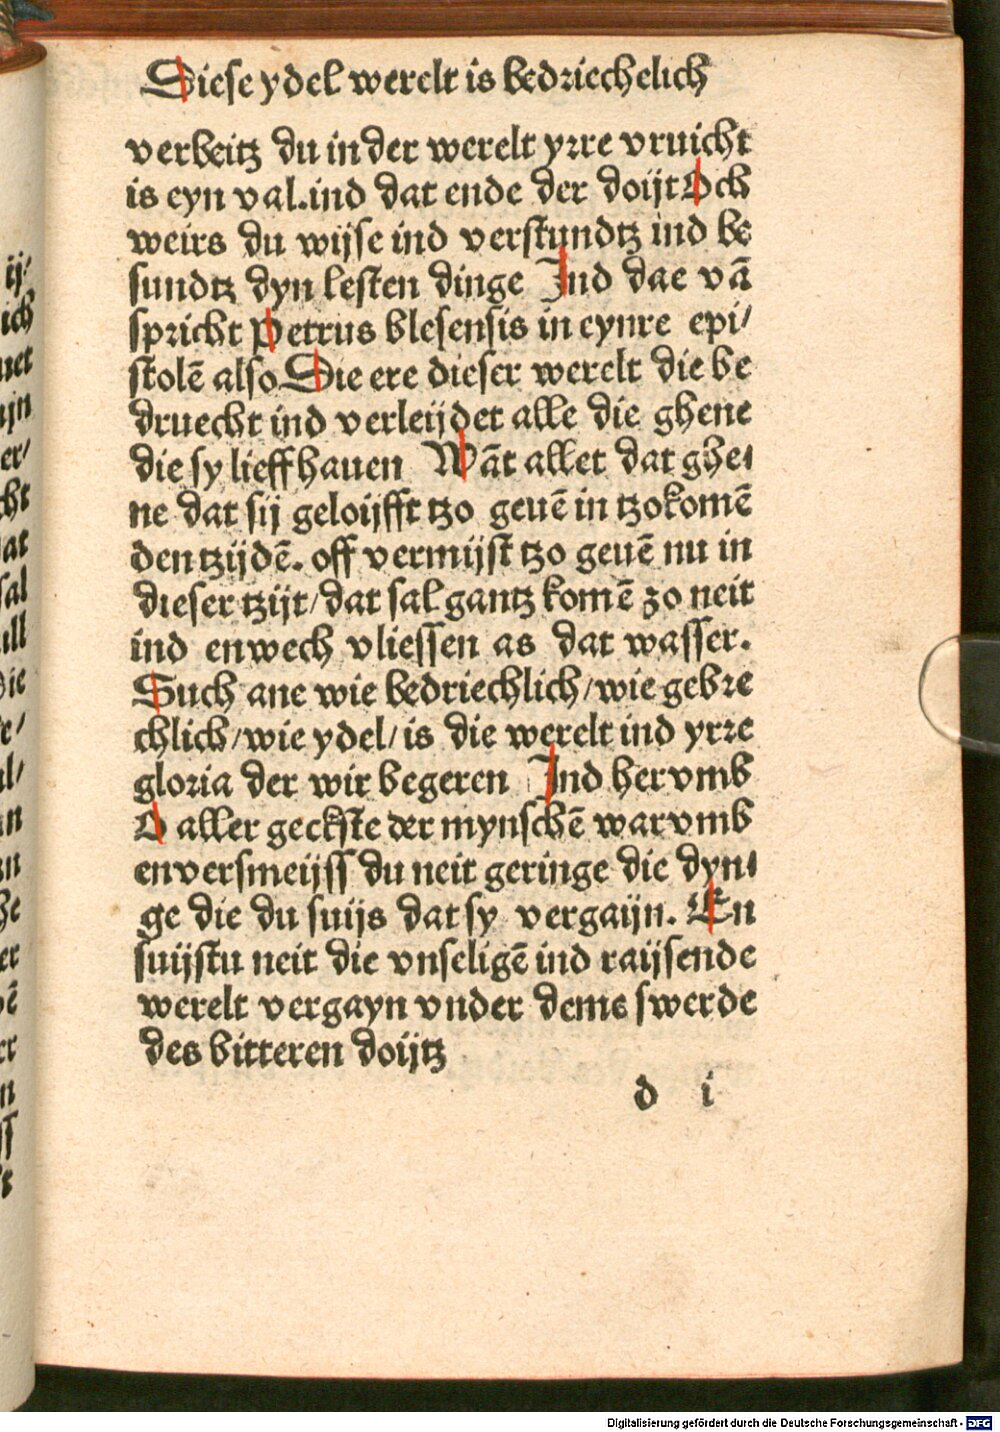 Diese ydel werelt is bedriechelich
verbeitz du in der werelt yrre vruicht
is eyn val.ind dat ende der doijt Och
weirs du wijse ind verstundtz ind be
sundtz dyn lesten dinge Ind dae vā
spricht Petrus blesensis in eynre epi/
stolē also. Die ere dieser werelt die be
druecht ind verleijdet alle die ghene
die sy lieff hauen Wāt allet dat ghe/
ne dat sij geloijfft tzo geuē in tzokomē
den tzijdē. off vermijst tzo geuē nu in
dieser tzijt/dat sal gantz komē zo neit
ind enwech vliessen as dat wasser.
Such ane wie bedriechlich/wie gebre
chlich/wie ydel/is die werelt ind yrre
gloria der wir begeren Ind her vmb
O aller geckste der mynschē war vmb
enversmeijss du neit geringe die dyn/
ge die du suijs dat sy vergaijn. En
suijstu neit die vnseligē ind raijsende
werelt vergayn vnder deme swerde
des bitteren doijtz
d i
ij/
ich
net
ijn
er/
cht
at
sal
ull
die
e/
al/
en
he
er
Digitalisierung gefördert durch die Deutsche Forschungsgemeinschaft - DFG